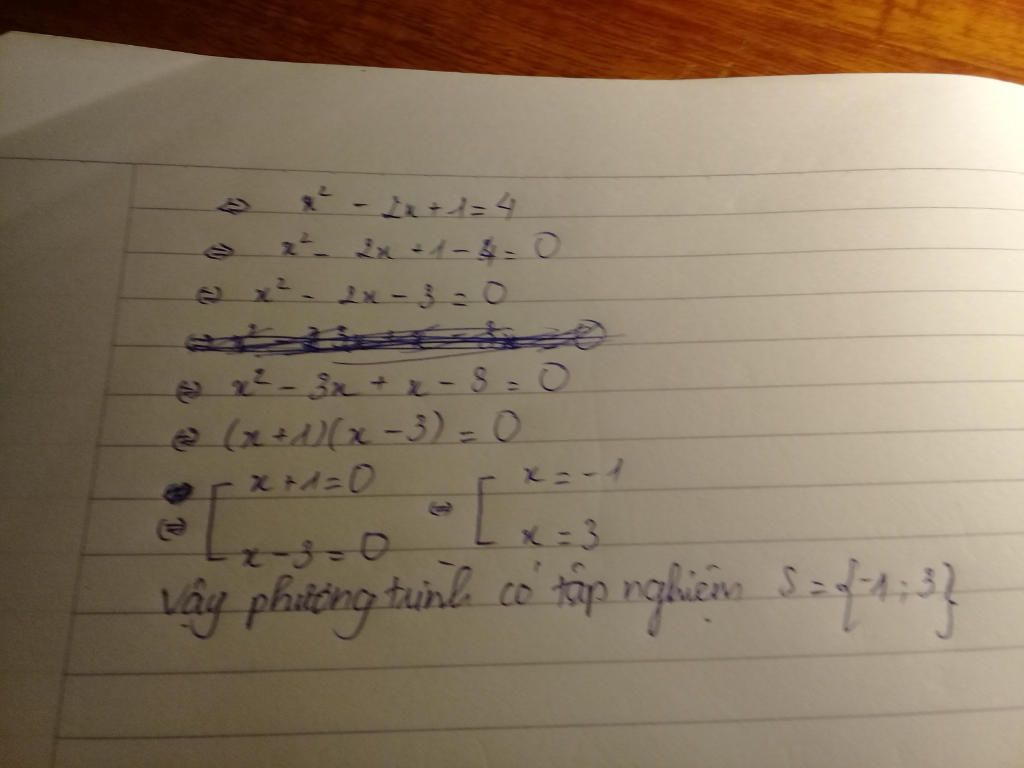 ⇔ x² - 2x + 1 = 4
⇔ x² - 2x + 1 - 4 = 0
⇔ x² - 2x - 3 = 0
⇔ x² - 3x + x - 3 = 0
⇔ (x+1)(x-3) = 0
⇔ [ x+1=0 ⇔ [ x = -1
x-3 = 0 x = 3
Vậy phương trình có tập nghiệm S = {-1; 3}